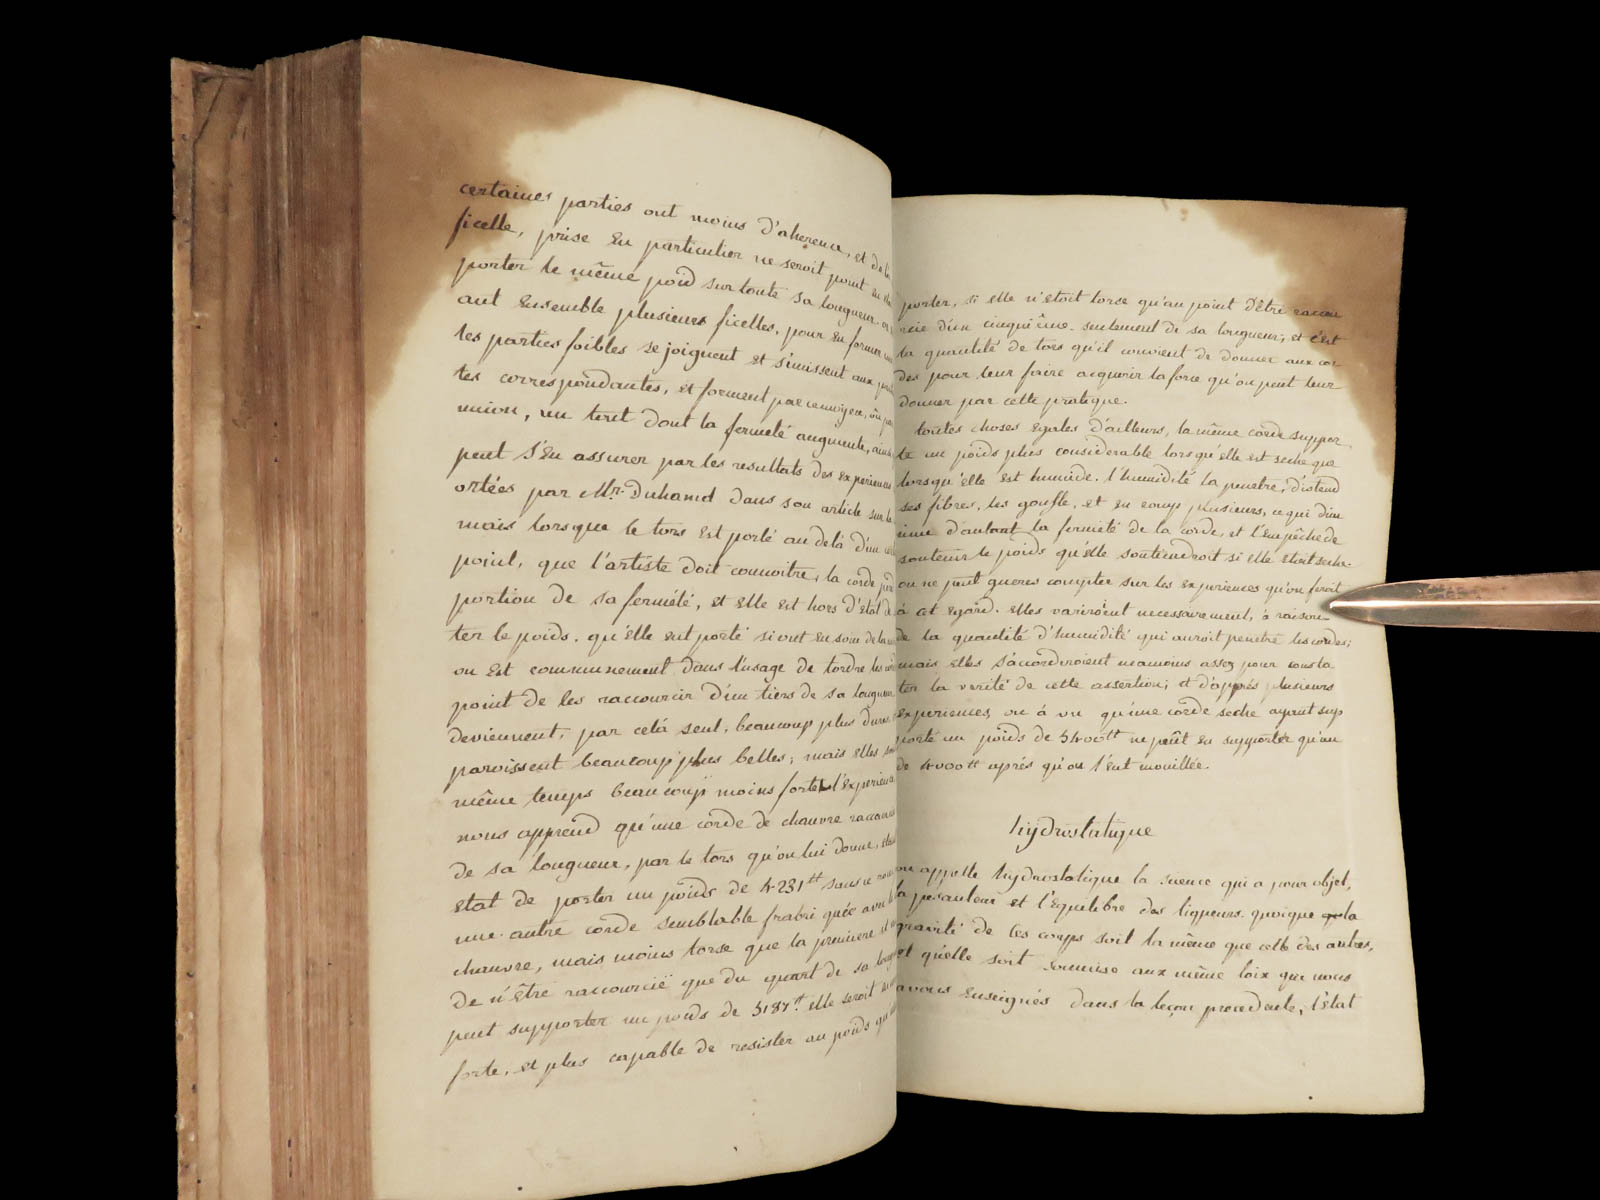 certaines parties ont moins d'aherence, et de la
ficelle, prise en particulier ne seroit point en
porter le même poid sur toute sa longueur.
ant ensemble plusieurs ficelles, pour en former
les parties foibles se joignent et s'unissent aux
tes correspondantes, et forment par ce moyen,
union, un tout dont la fermeté augmente,
peut s'en assurer par les resultats des experiences
ortées par Mr. Duhamel dans son article sur
mais lorsque le tors est porté au delà d'un
point, que l'artiste doit connoitre, la corde perd
portion de sa fermeté, et elle est hors d'état de
ter le poids, qu'elle eut porté si
on est communnement dans l'usage de tordre les
point de les raccourcir d'un tiers de sa longueur
deviennent, par celà seul, beaucoup plus dures,
paroissent beaucoup plus belles; mais elles
même temps beaucoup moins fortes l'experience
nous apprend qu'une corde de chanvre
de sa longueur, par le tors qu'on lui donne,
etat de porter un poids de 4231tt sans
une autre corde semblable fabriquée avec
chanvre, mais moins torse que la premiere et
de n'être raccourcie que du quart de sa
peut supporter un poids de 5187tt. elle seroit
forte, et plus capable de resister au poids
porter, si elle n'étoit torse qu'au point d'être raccou
rcie d'un cinquiême seulement de sa longueur, et c'est
la quantité de tors qu'il convient de donner aux cor
des pour leur faire acquerir la force qu'on peut leur
donner par cette pratique.
toutes choses egales d'ailleurs, la même corde suppor
te un poids plus considerable lorsqu'elle est seche que
lorsqu'elle est humide. l'humidité la penetre, distend
ses fibres, les gonfle, et en romp plusieurs, ce qui dim
inue d'autant la fermeté de la corde, et l'empêche de
soutenir le poids qu'elle soutiendroit si elle etoit seche.
on ne peut gueres compter sur les experiences qu'on feroit
à cet egard. elles varieroient necessairement, à raison
de la quantité d'humidité qui auroit penetré les cordes;
mais elles s'accorderoient neamoins assez pour consta
ter la verité de cette assertion; et d'après plusieurs
experiences, on à vu qu'une corde seche ayant sup
porté un poids de 5400tt ne peût en supporter qu'un
de 4000tt après qu'on l'eut mouillée.
hydrostatique
on appelle hydrostatique la science qui a pour objet,
la pesanteur et l'équilibre des liqueurs. quoique la
gravité de ces corps soit la même que celle des autres,
et qu'elle soit soumise aux même loix que nous
avons enseignés dans la leçon precedente, l'état